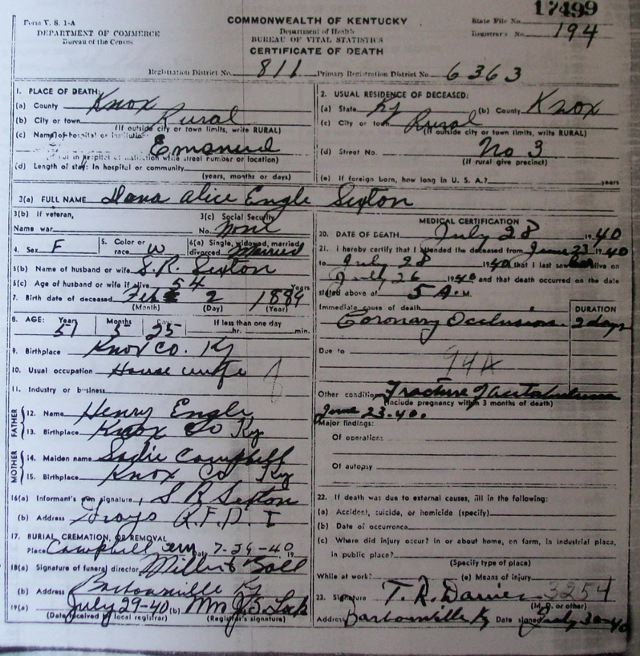 Form V. S. 1-A
DEPARTMENT OF COMMERCE
Bureau of the Census
COMMONWEALTH OF KENTUCKY
Department of Health
BUREAU OF VITAL STATISTICS
CERTIFICATE OF DEATH
State File No. 17499
Registrar's No. 194
Registration District No. 811 Primary Registration District No. 6363
1. PLACE OF DEATH:
(a) County Knox
(b) City or town Rural
(If outside city or town limits, write RURAL)
(c) Name of hospital or institution
Emanuel
(If not in hospital or institution write street number or location)
(d) Length of stay: In hospital or community
(years, months or days)
2. USUAL RESIDENCE OF DECEASED:
(a) State Ky (b) County Knox
(c) City or town Rural
(If outside city or town limits, write RURAL)
(d) Street No. No 3
(If rural give precinct)
(e) If foreign born, how long in U. S. A.? years
3(a) FULL NAME Dana Alice Engle Sexton
3(b) If veteran,
Name war
3(c) Social Security
No. None
4. Sex F
5. Color or
race W
6(a) Single, widowed, married
divorced Married
6(b) Name of husband or wife S. R. Sexton
6(c) Age of husband or wife if alive 54
7. Birth date of deceased Feb 2 1889
(Month) (Day) (Year)
8. AGE: Years Months Days If less than one day
51 5 25 hr. min.
9. Birthplace Knox Co. Ky
10. Usual occupation House wife
11. Industry or business
FATHER
12. Name Henry Engle
13. Birthplace Knox Co Ky
MOTHER
14. Maiden name Sadie Campbell
15. Birthplace Knox Co Ky
16(a) Informant's own signature S R Sexton
(b) Address R.F.D. 1
17. BURIAL, CREMATION, OR REMOVAL
Place Campbell Cem Date 7-29-40 19
18(a) Signature of funeral director
(b) Address Barbourville Ky
19(a) July 29-40 (b)
(Date received by local registrar) (Registrar's signature)
MEDICAL CERTIFICATION
20. DATE OF DEATH July 28 1940
21. I hereby certify that I attended the deceased from June 23 1940
to July 28 1940 that I last saw her alive on
July 26 1940 and that death occurred on the date
stated above at 5 A. M.
Immediate cause of death DURATION
Coronary Occlusion 2 days
Due to
94A
Other conditions Fracture of Acetabulum
(Include pregnancy within 3 months of death)
June 23-40.
Major findings:
Of operations
Of autopsy
22. If death was due to external causes, fill in the following:
(a) Accident, suicide, or homicide (specify)
(b) Date of occurrence
(c) Where did injury occur? in or about home, on farm, in industrial place,
in public place?
(Specify type of place)
While at work? (e) Means of injury
23. Signature T. R. Davies 3254
(M. D. or other)
Address Barbourville Ky Date signed July 30-40